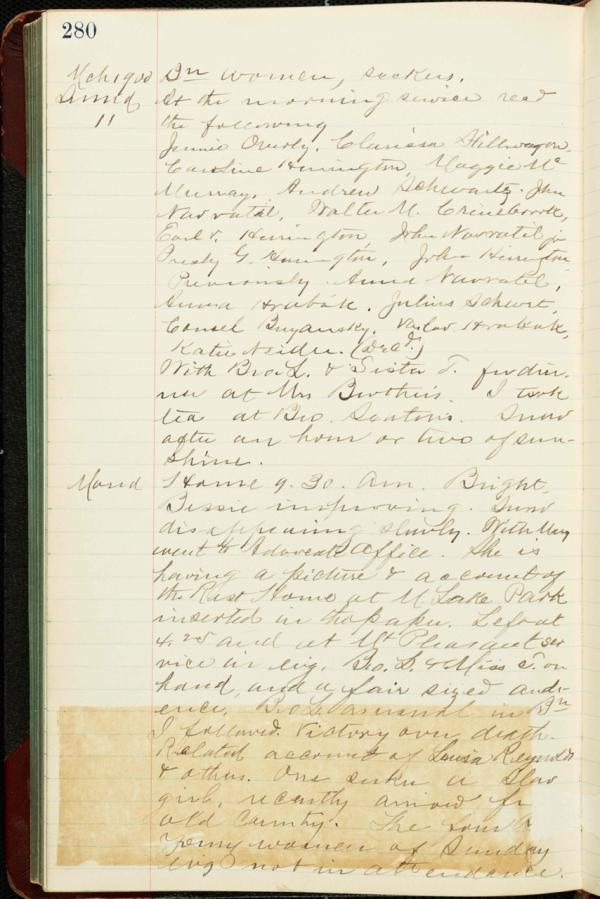 280
Mch 1900 Bn women, seekers.
Sund At the morning service read
11 the following
Jennie Overly, Clarissa Stillwagon
Caroline Herrington Maggie Mc
Murray, Andrew Schwartz. John
Navratil, Walter M.
Earl V. Herrington John Navratil jr
Presly G. Herrington, John Herrington
Previously Anna Navratil,
Anna Hrabák, Julius Schwert,
Consel Buzansky, Vaclav Hrabak,
Katie Neider. (Decd.)
With Bro L. & Sister T. for din-
ner at Mrs I took
tea at Bro. Seatons. Snow
after an hour or two of sun-
shine.
Mond Home 9.30. Am. Bright.
Bessie improving. Snow
disappearing slowly. With
went to Advocate Office. She is
having a picture & account of
the Rest Home at M Lake Park
inserted in the paper. Left at
4.25 and at Mt Pleasant ser
vice in evg. Bro. L. & Miss T. on
hand, and a fair sized audi-
ence. Bro L. as usual in Bn
I followed. Victory over death.
Related account of Louisa Reynolds
& others. One seeker a Slav
girl, recently arrived fr
old Country. The four
women of Sunday
evg not in attendance.